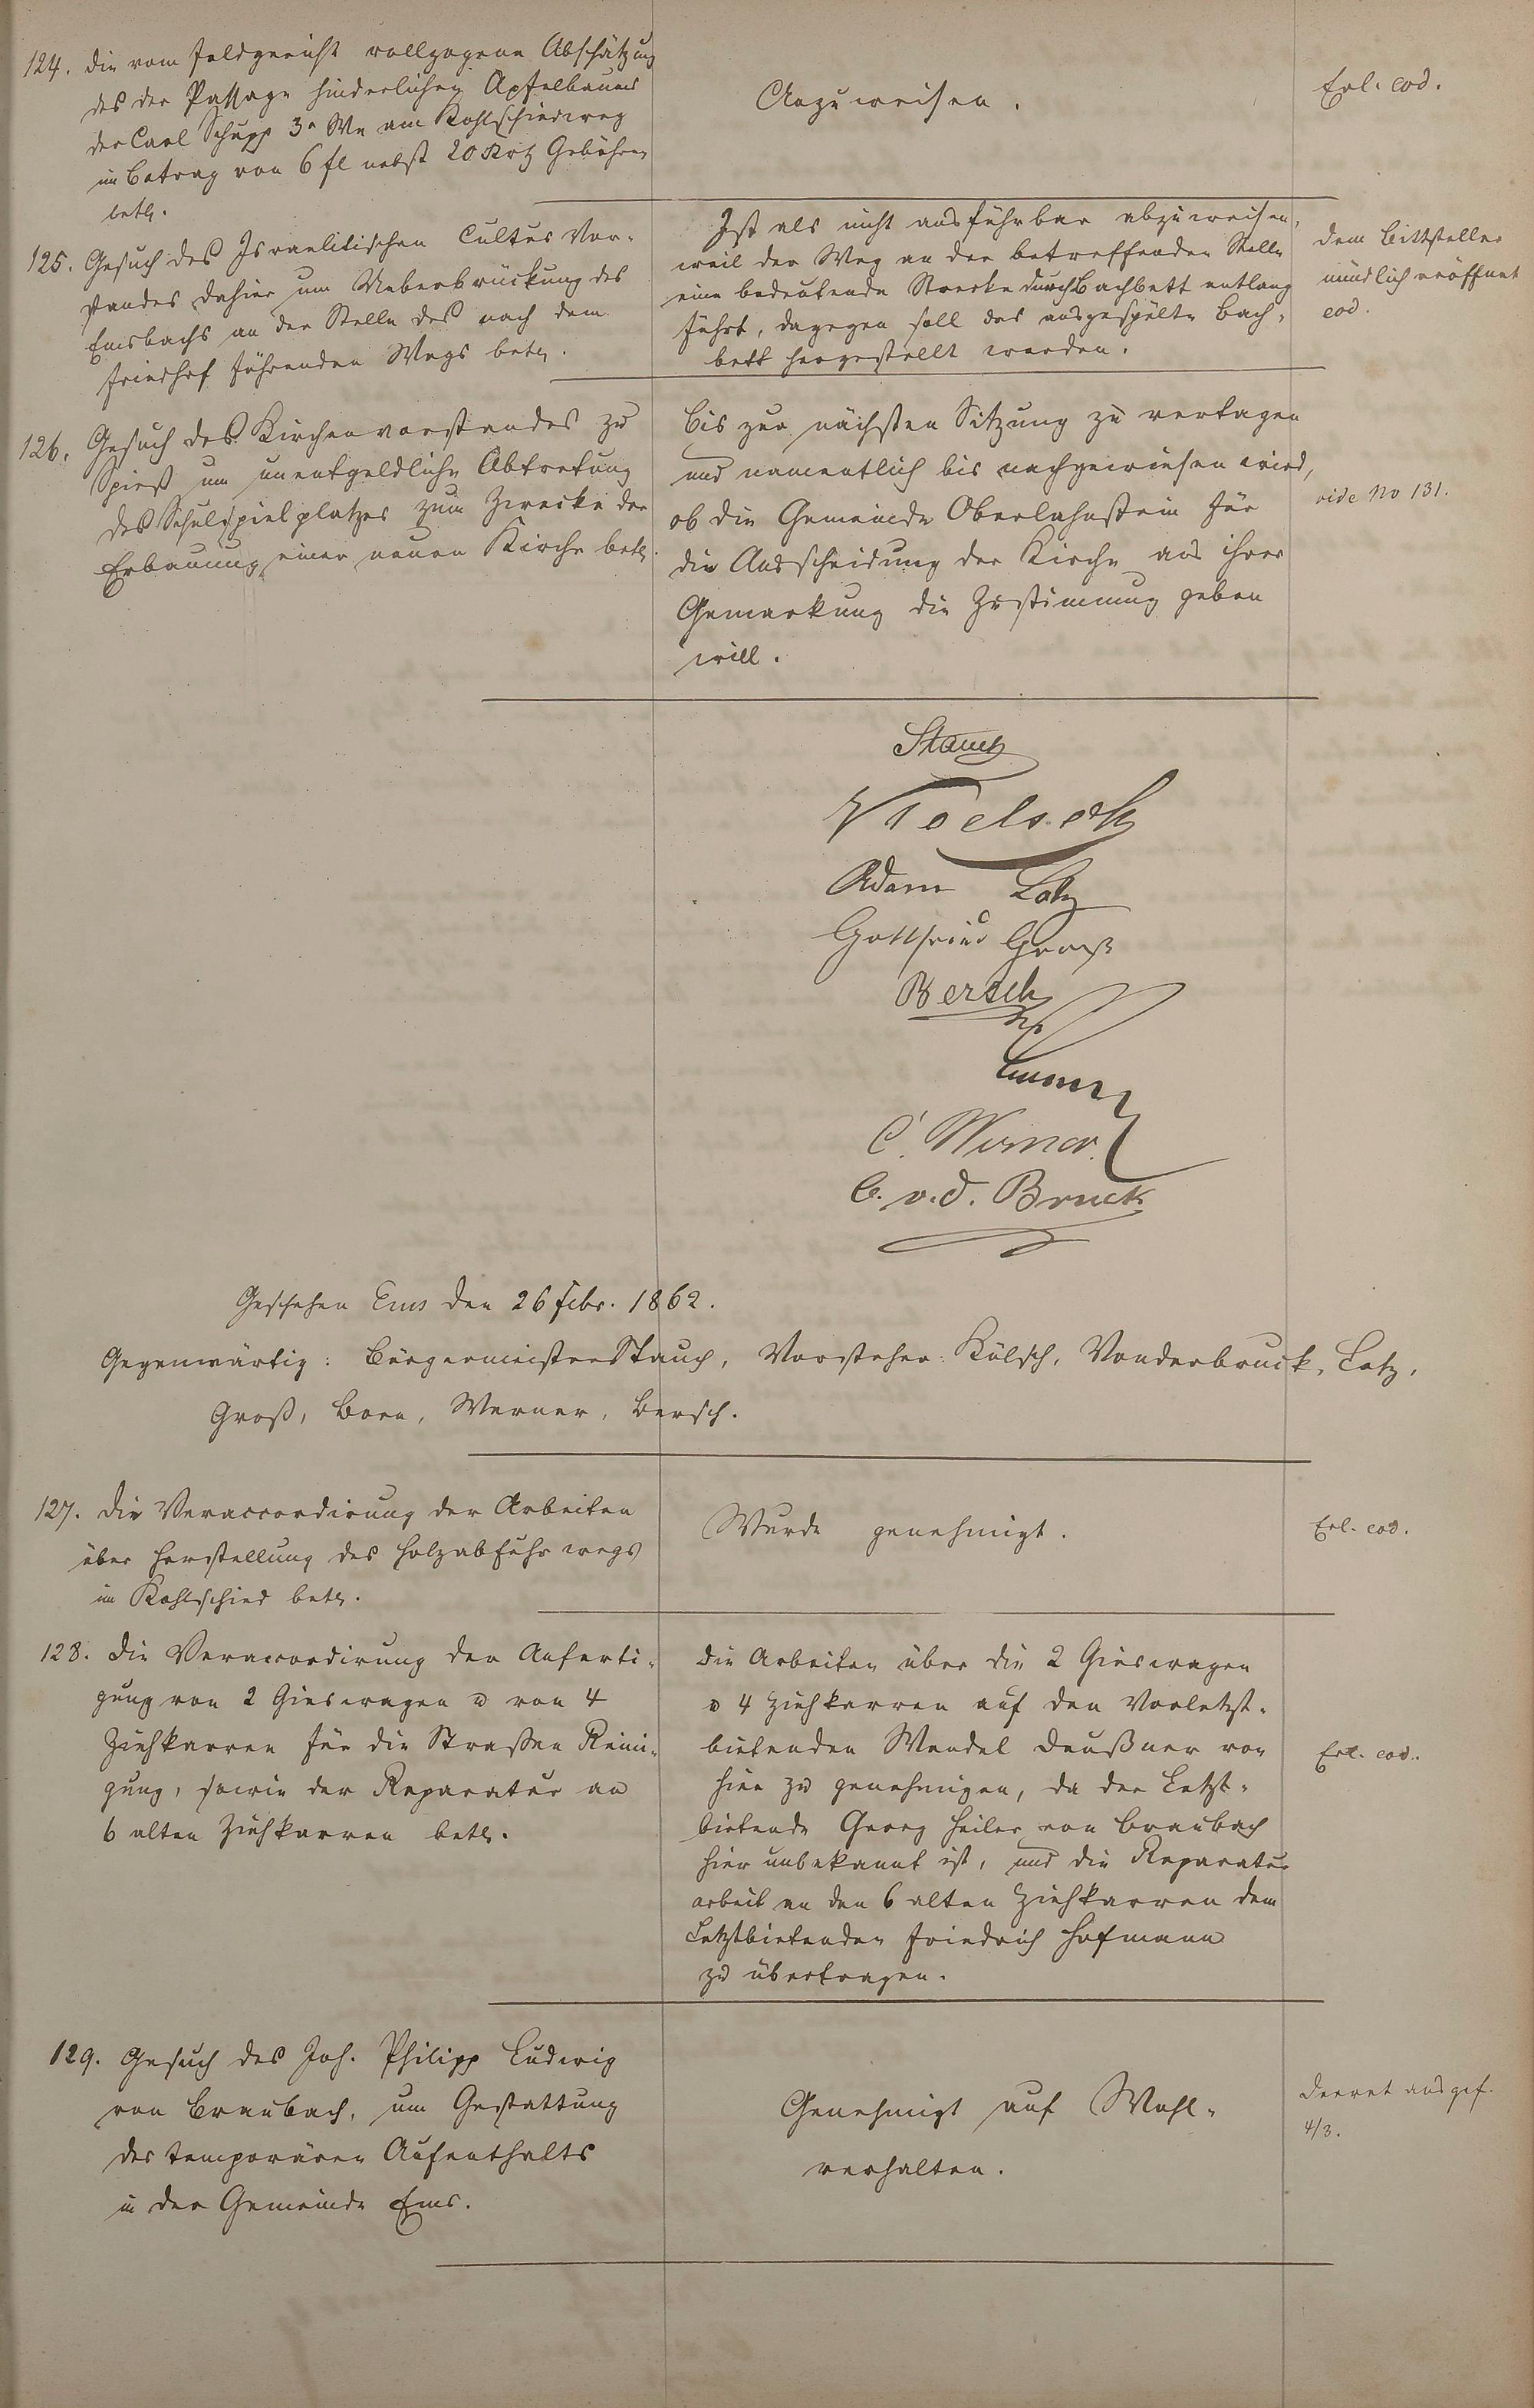 124. Die vom Feldgericht vollzogene Abschätzung
des der Passage hinderlichen Apfelbaums
der Carl Schupp 3r We am Kohlschiedweg
im Betrag von 6 fl nebst 20 Krz Gebühren
betr.
Anzuweisen.
Erl. eod.
125. Gesuch des Israelitischen Cultus Vor-
standes dahier um Ueberbrückung des
Emsbachs an der Stelle des nach dem
Friedhof führenden Wegs betr.
Ist als nicht ausführbar abzuweisen,
weil der Weg an der betreffenden Stelle
eine bedeutende Strecke durch Bachbett entlang
führt, dagegen soll das ausgespülte Bach-
bett hergestellt werden.
Dem Bittsteller
mündlich eröffnet
eod.
126. Gesuch des Kirchenvorstandes zu
Spieß um unentgeldliche Abtretung
des Schulspielplatzes zum Zwecke der
Erbauung einer neuen Kirche betr.
Bis zur nächsten Sitzung zu vertagen
und namentlich bis nachgewiesen wird,
ob die Gemeinde Oberlahnstein für
die Ausscheidung der Kirche aus ihrer
Gemarkung die Zustimmung geben
will.
vide No 131.
Stauch
Koelsch
Adam Lotz
Gottfried Groß
Bersch
C. Werner
C. v. d. Bruck
Geschehen Ems den 26 Febr. 1862.
Gegenwärtig: Bürgermeister Stauch, Vorsteher: Kölsch, Vonderbruck, Lotz,
Groß, Born, Werner, Bersch.
127. Die Veraccordirung der Arbeiten
über Herstellung des Holzabfuhrwegs
im Kohlschied betr.
Wurde genehmigt.
Erl. eod.
128. Die Veraccordirung der Anferti-
gung von 2 Gieswagen u von 4
Ziehkarren für die Straßen Reini-
gung, sowie der Reparatur an
6 alten Ziehkarren betr.
Die Arbeiten über die 2 Gieswagen
u 4 Ziehkarren auf den Vorletzt-
bietenden Wendel Deußner von
hier zu genehmigen, da der Letzt-
bietende Georg Heiler von Braubach
hier unbekannt ist, und die Reparatur
arbeit an den 6 alten Ziehkarren dem
Letztbietenden Friedrich Hofmann
zu übertragen.
Erl. eod.
129. Gesuch des Joh. Philipp Ludwig
von Braubach, um Gestattung
des temporären Aufenthalts
in der Gemeinde Ems.
Genehmigt auf Wohl-
verhalten.
Decret ausgef.
4/3.